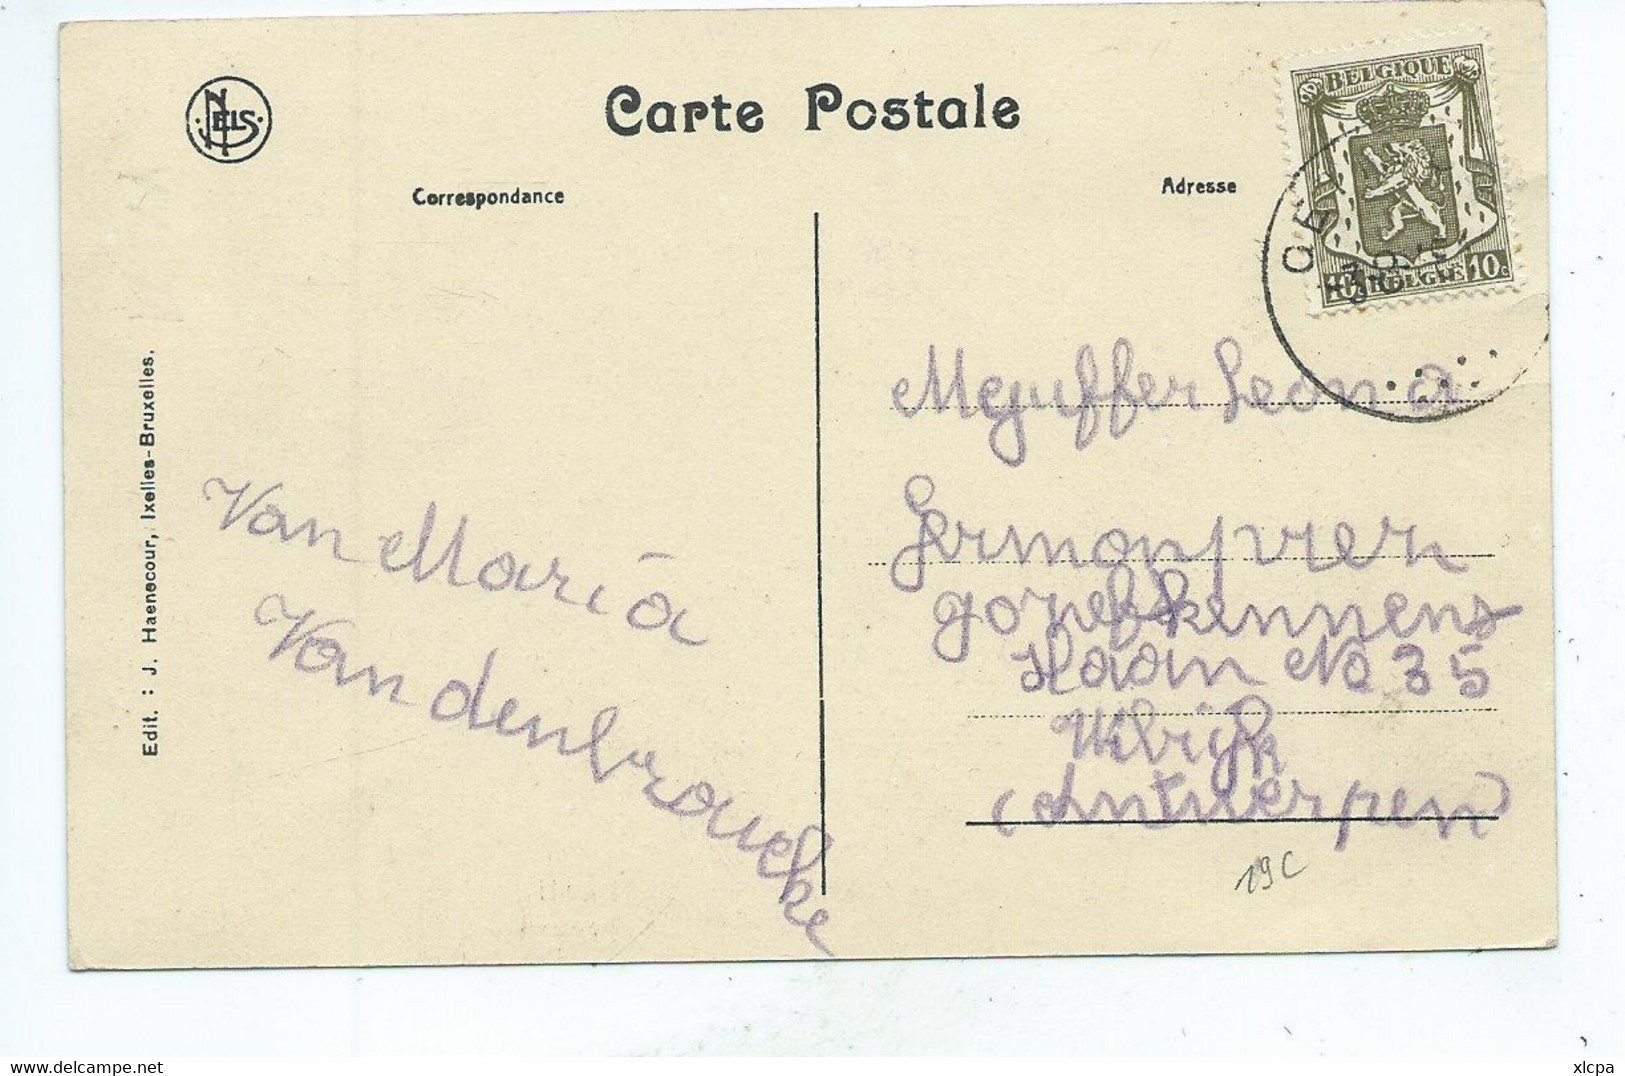 NELS
Carte Postale
Correspondance
Adresse
BELGIQUE
10c BELGIË 10c
Edit. : J. Haenecour, Ixelles-Bruxelles.
Van Maria
Vandenbroucke
Mejuffer Leona
Germonpren
Laan No 35
Wilrijk
(Antwerpen)
19C
delcampe.net
xlcpa